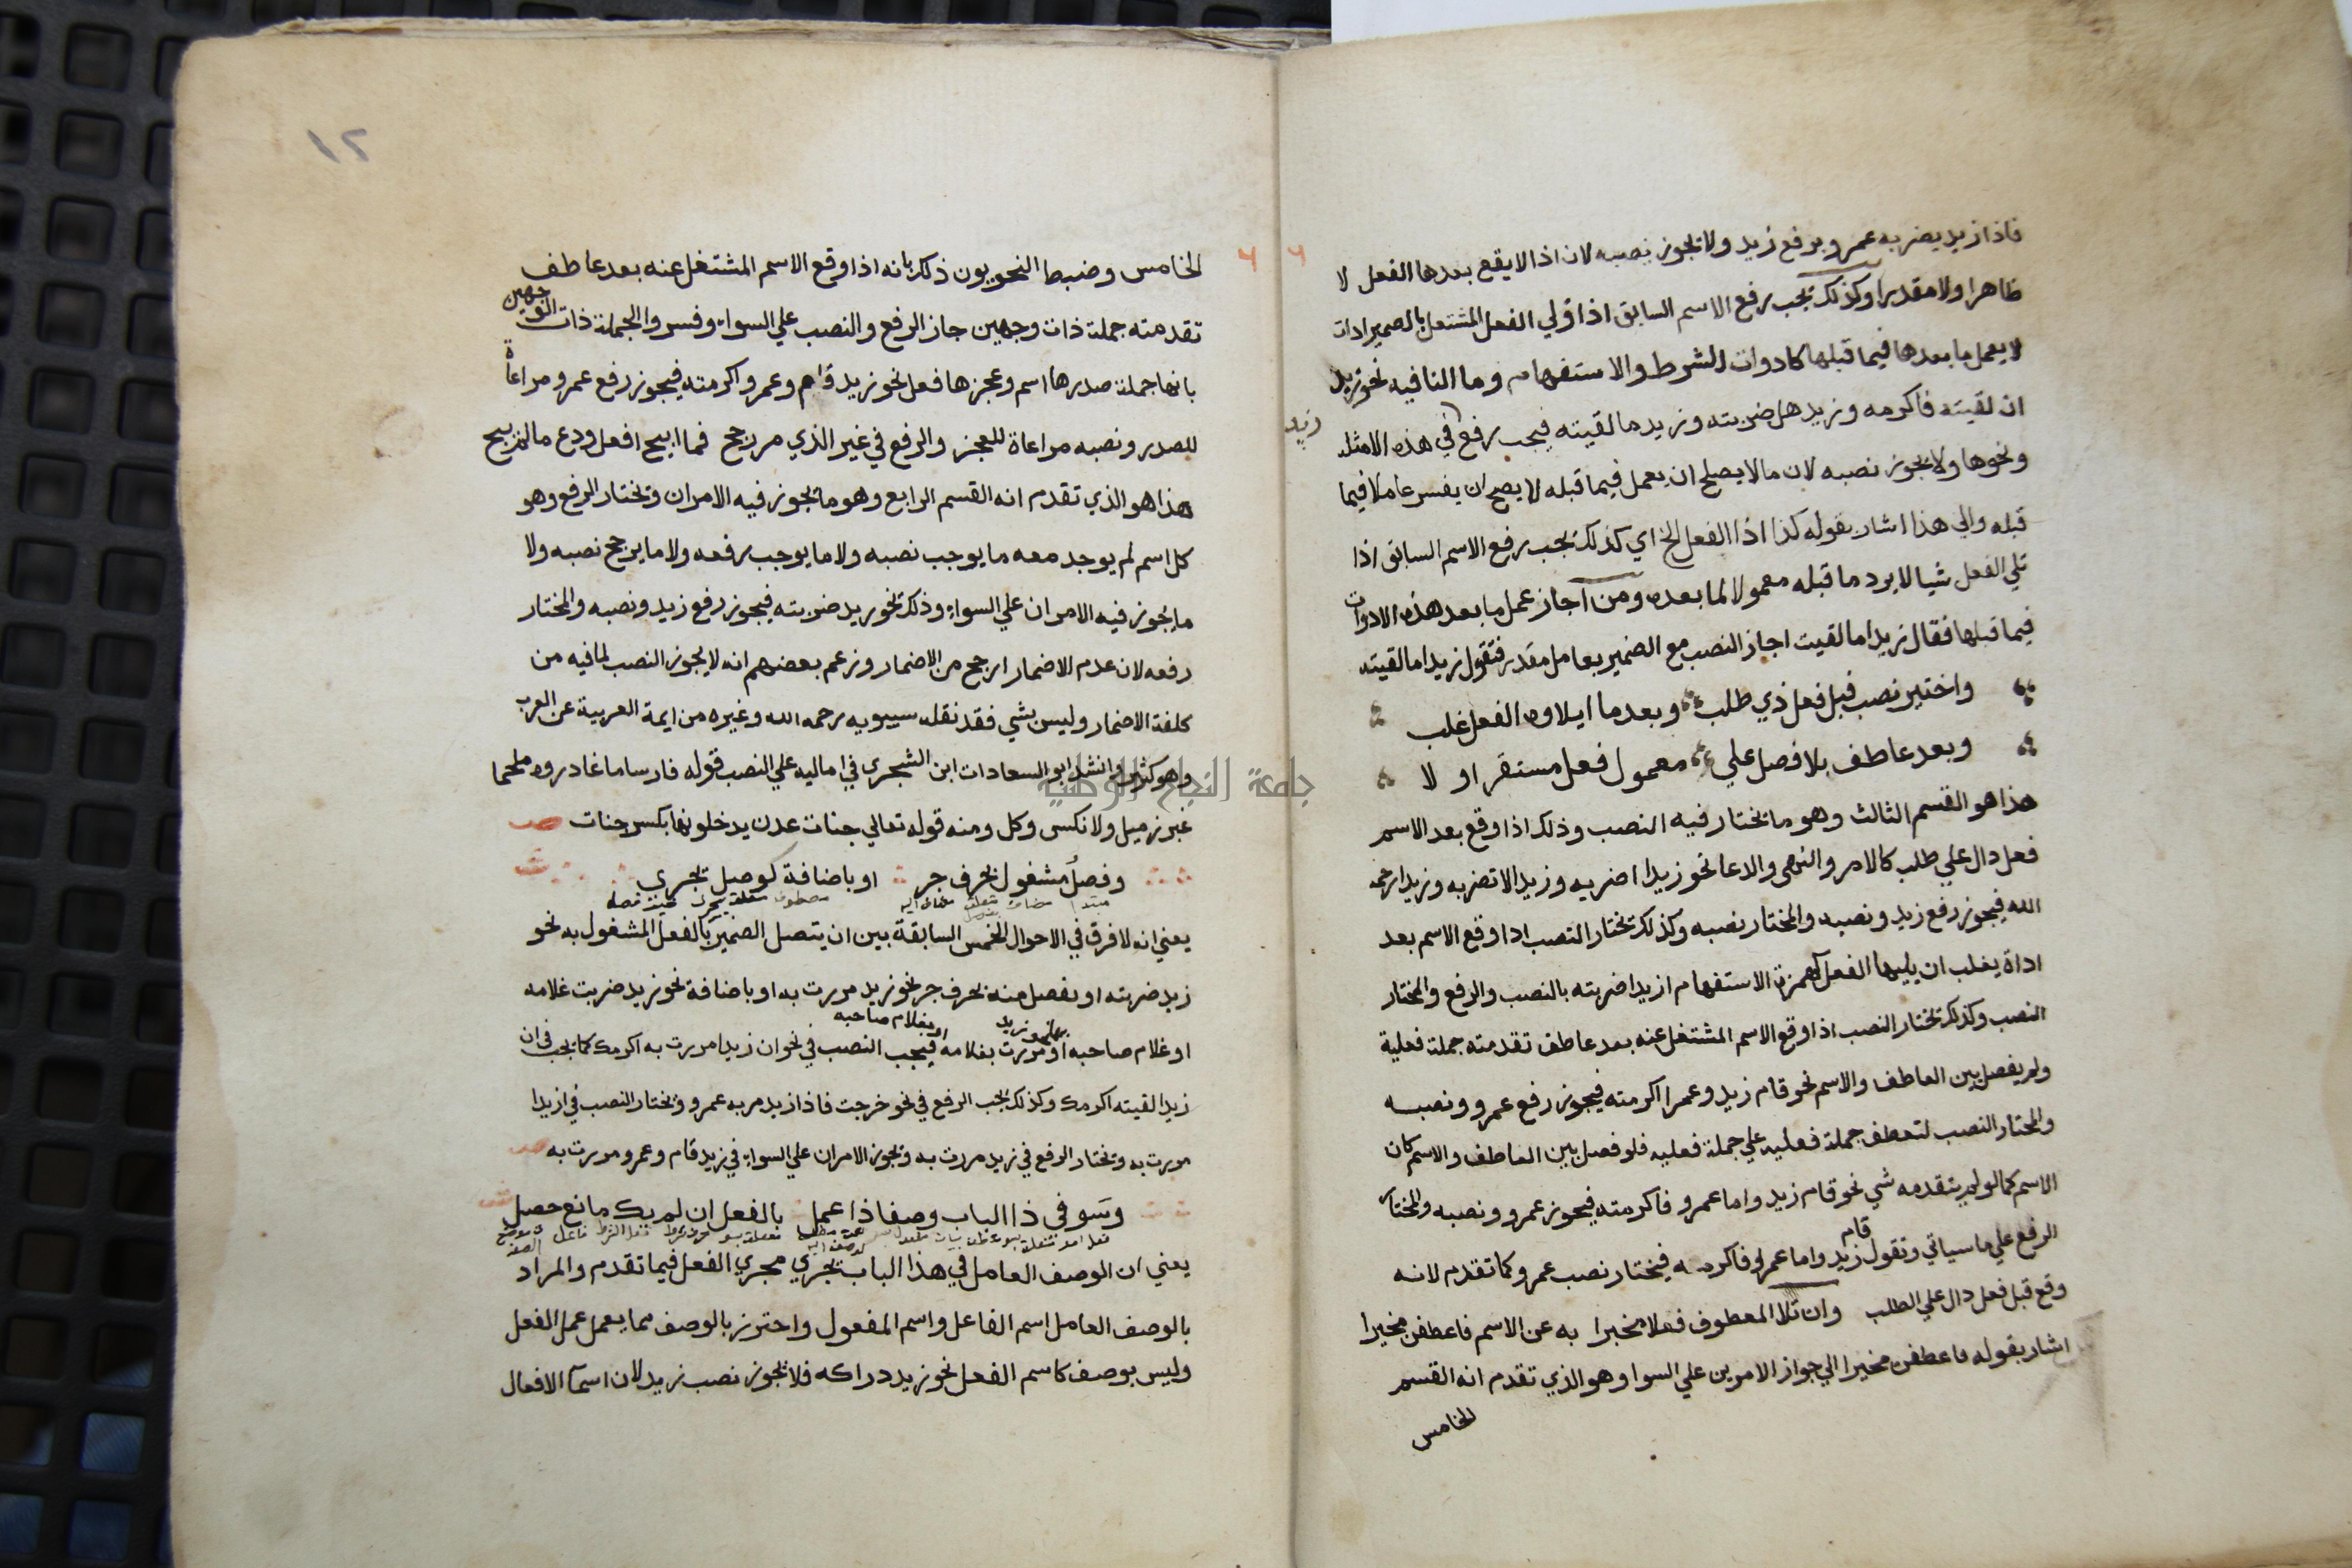 فاذا زيد يضربه عمرو برفع زيد ولا يجوز نصبه لان اذا لا يقع بعدها الفعل لا
ظاهرا ولا مقدرا وكذلك يجب رفع الاسم السابق اذا ولي الفعل المشتغل بالضمير ادات
لا يعمل ما بعدها فيما قبلها كادوات الشرط والاستفهام وما النافيه نحو زيد
ان لقيته فاكرمه وزيد هل ضربته وزيد ما لقيته فيجب رفع في هذه الامثله
زيد
ونحوها ولا يجوز نصبه لان ما لا يصلح ان يعمل فيما قبله لا يصح ان يفسر عاملا فيما
قبله والي هذا اشار بقوله كذا اذا الفعل الخ اي كذلك يجب رفع الاسم السابق اذا
تلي الفعل شيا لا يرد ما قبله معمولا لما بعده ومن اجاز عمل ما بعد هذه الادوات
فيما قبلها فقال زيدا ما لقيت اجاز النصب مع الضمير بعامل مقدر فتقول زيدا ما لقيته
واختير نصب قبل فعل ذي طلب وبعد ما ايلاوه الفعل غلب
وبعد عاطف بلا فصل علي معمول فعل مستقر او لا
هذا هو القسم الثالث وهو ما يختار فيه النصب وذلك اذا وقع بعد الاسم
فعل دال علي طلب كالامر والنهي والدعا نحو زيدا اضربه وزيدا لا تضربه وزيدا رحمه
الله فيجوز رفع زيد ونصبه والمختار نصبه وكذلك يختار النصب اذا وقع الاسم بعد
اداة يغلب ان يليها الفعل كهمزة الاستفهام ازيدا ضربته بالنصب والرفع والمختار
النصب وكذلك يختار النصب اذا وقع الاسم المشتغل عنه بعد عاطف تقدمته جملة فعلية
ولم يفصل بين العاطف والاسم نحو قام زيد وعمرا اكرمته فيجوز رفع عمرو ونصبه
والمختار النصب لتعطف جملة فعليه علي جملة فعليه فلو فصل بين العاطف والاسم كان
الاسم كما لو لم يتقدمه شي نحو قام زيد واما عمرو فاكرمته فيجوز عمرو ونصبه والمختار
الرفع علي ما سياتي وتقول قام زيد واما عمرا فاكرمه فيختار نصب عمرو كما تقدم لانه
وقع قبل فعل دال علي الطلب وان تلا المعطوف فعلا مخبرا به عن الاسم فاعطفن مخيرا
اشار بقوله فاعطفن مخيرا الي جواز الامرين علي السوا وهو الذي تقدم انه القسم
الخامس
١٢
الخامس وضبط النحويون ذلك بانه اذا وقع الاسم المشتغل عنه بعد عاطف
تقدمته جملة ذات وجهين جاز الرفع والنصب علي السواء وفسروا الجملة ذات الوجهين
بانها جملة صدرها اسم وعجزها فعل نحو زيد قام وعمرو اكرمته فيجوز رفع عمرو مراعاة
للصدر ونصبه مراعاة للعجز والرفع في غير الذي مر رجح فما ابيح افعل ودع ما لم يبح
هذا هو الذي تقدم انه القسم الرابع وهو ما يجوز فيه الامران ويختار الرفع وهو
كل اسم لم يوجد معه ما يوجب نصبه ولا ما يوجب رفعه ولا ما يرجح نصبه ولا
ما يجوز فيه الامران علي السواء وذلك نحو زيد ضربته فيجوز رفع زيد ونصبه والمختار
رفعه لان عدم الاضمار ارجح من الاضمار وزعم بعضهم انه لا يجوز النصب لما فيه من
كلفة الاضمار وليس بشي فقد نقله سيبويه رحمه الله وغيره من ايمة العربية عن العرب
وهو كثير وانشد ابو السعادات ابن الشجري في اماليه علي النصب قوله فارسا ما غادروه ملحما
جامعة النجاح الوطنية
غير زميل ولا نكس وكل ومنه قوله تعالي جنات عدن يدخلونها بكسر جنات ص
وفصل مشغول بحرف جر او باضافة كوصل يجري
يعني انه لا فرق في الاحوال الخمس السابقة بين ان يتصل الضمير بالفعل المشغول به نحو
زيد ضربته او يفصل منه بحرف جر نحو زيد مررت به او باضافة نحو زيد ضربت غلامه
او بغلام صاحبه
او غلام صاحبه او مررت بغلامه فيجب النصب في نحو ان زيدا مررت به اكرمك كما يجب في ان
زيدا لقيته اكرمك وكذلك يجب الرفع في نحو خرجت فاذا زيد مر به عمرو ويختار النصب في ازيدا
مررت به ويختار الرفع في زيد مررت به ويجوز الامران علي السواء في زيد قام وعمرو مررت به ص
وسو في ذا الباب وصفا ذا عمل بالفعل ان لم يك مانع حصل
يعني ان الوصف العامل في هذا الباب يجري مجري الفعل فيما تقدم والمراد
بالوصف العامل اسم الفاعل واسم المفعول واحترز بالوصف مما يعمل عمل الفعل
وليس بوصف كاسم الفعل نحو زيد دراكه فلا يجوز نصب زيد لان اسما الافعال